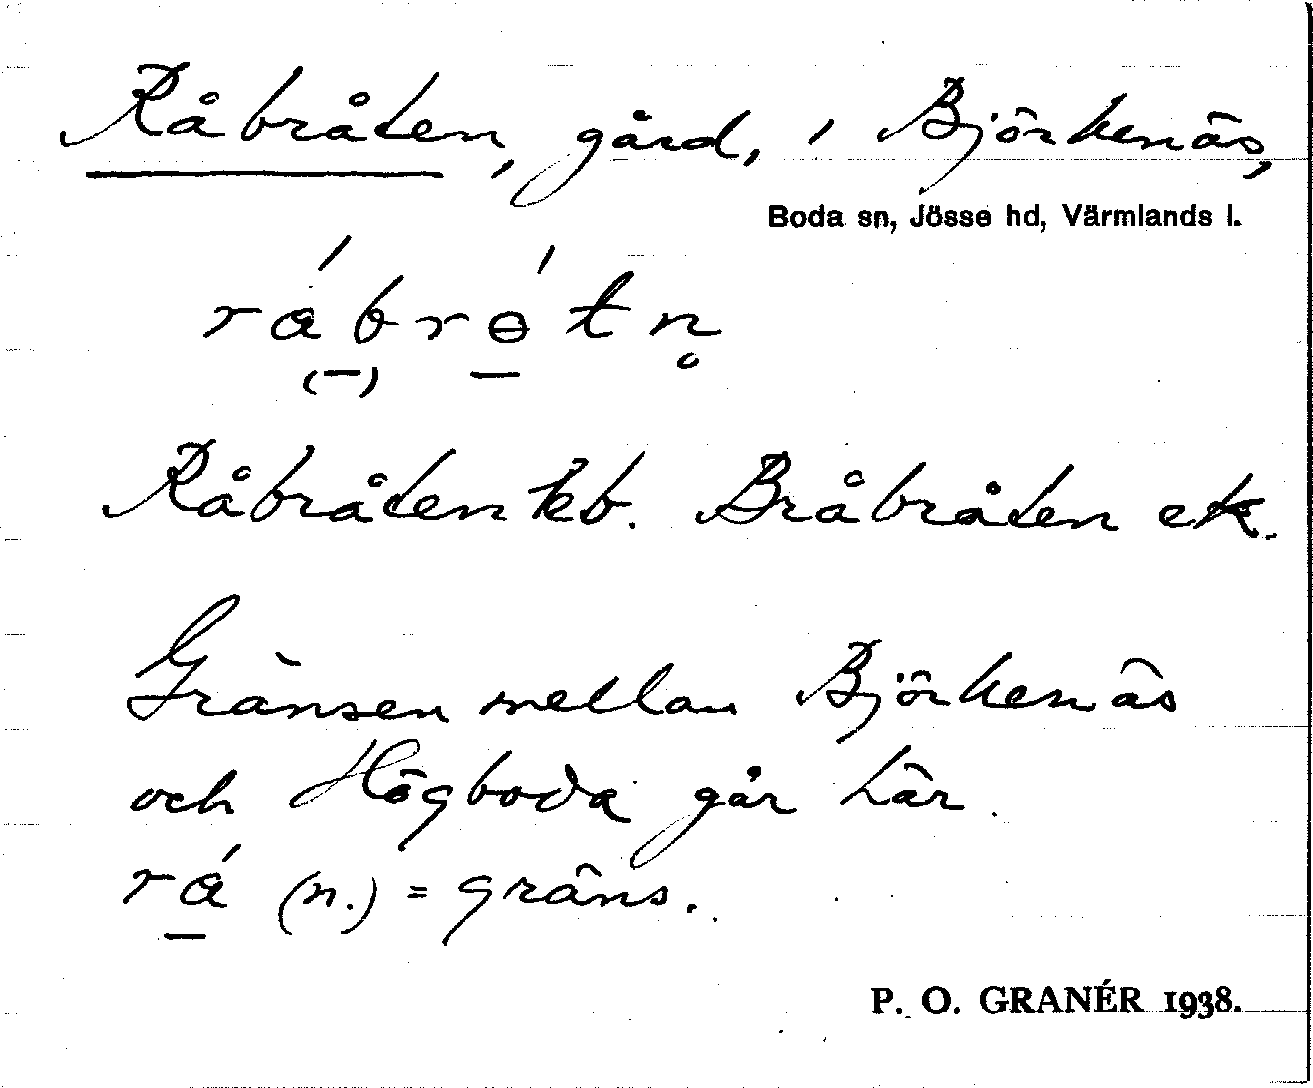 Råbråten, gård, i Björkenäs,
Boda sn, Jösse hd, Värmlands l.
rábrɵ́tn̥
Råbråten kb. Bråbråten ek.
Gränsen mellan Björkenäs
och Högboda går här.
rá (n.) = gräns.
P. O. GRANÉR 1938.